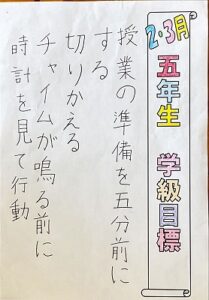 2・3月 五年生 学級目標
授業の準備を五分前に
する
切りかえる
チャイムが鳴る前に
時計を見て行動